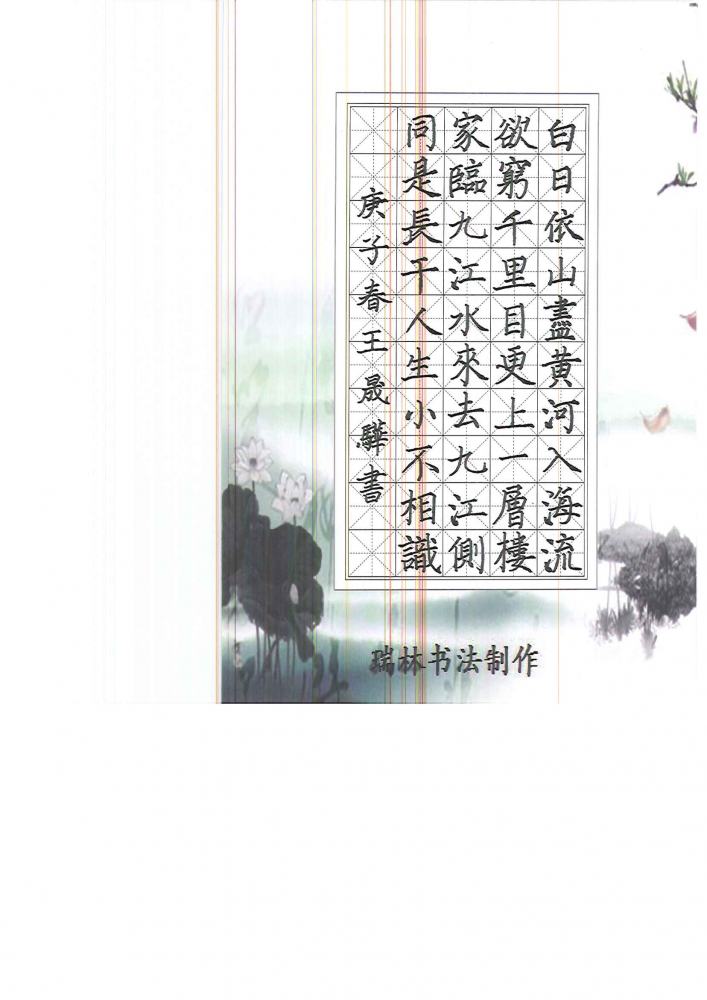 白日依山盡黄河入海流
欲窮千里目更上一層樓
家臨九江水來去九江側
同是長干人生小不相識
庚子春王晟驊書
瑞林书法制作